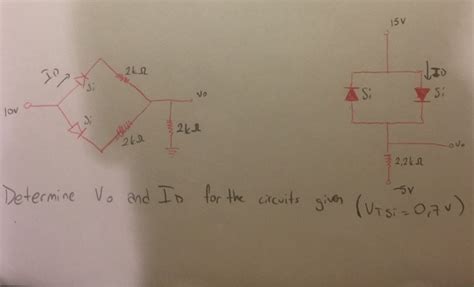 15V
ID
2kΩ
ID
Si
Vo
Si
Si
10V
Si
2kΩ
2kΩ
Vo
2,2kΩ
-5V
Determine Vo and ID for the circuits given (VTSi = 0,7V)